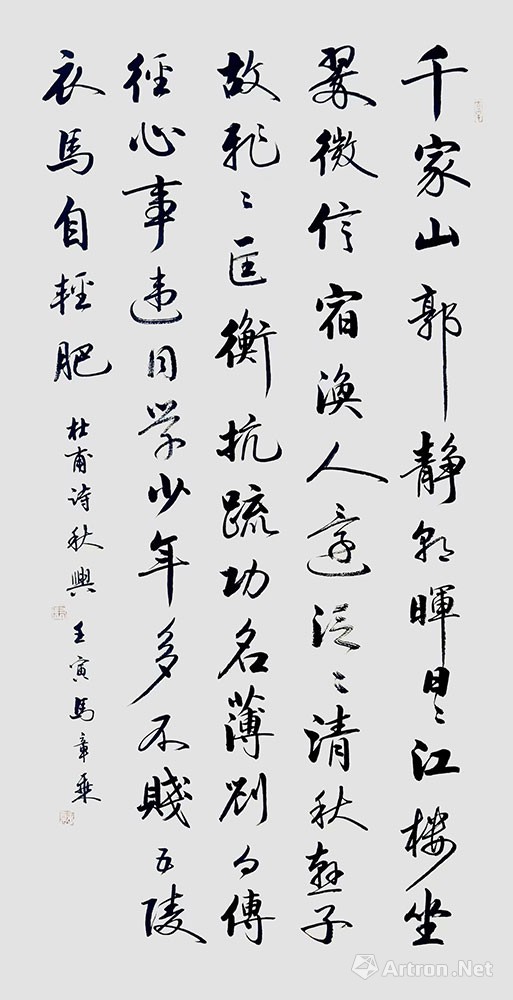 千家山郭靜朝暉日〻江樓坐
翠微信宿漁人還泛〻清秋燕子
故飛〻匡衡抗疏功名薄劉向傳
經心事違同學少年多不賤五陵
衣馬自輕肥
杜甫诗秋興 壬寅馬章乘
Artron.Net